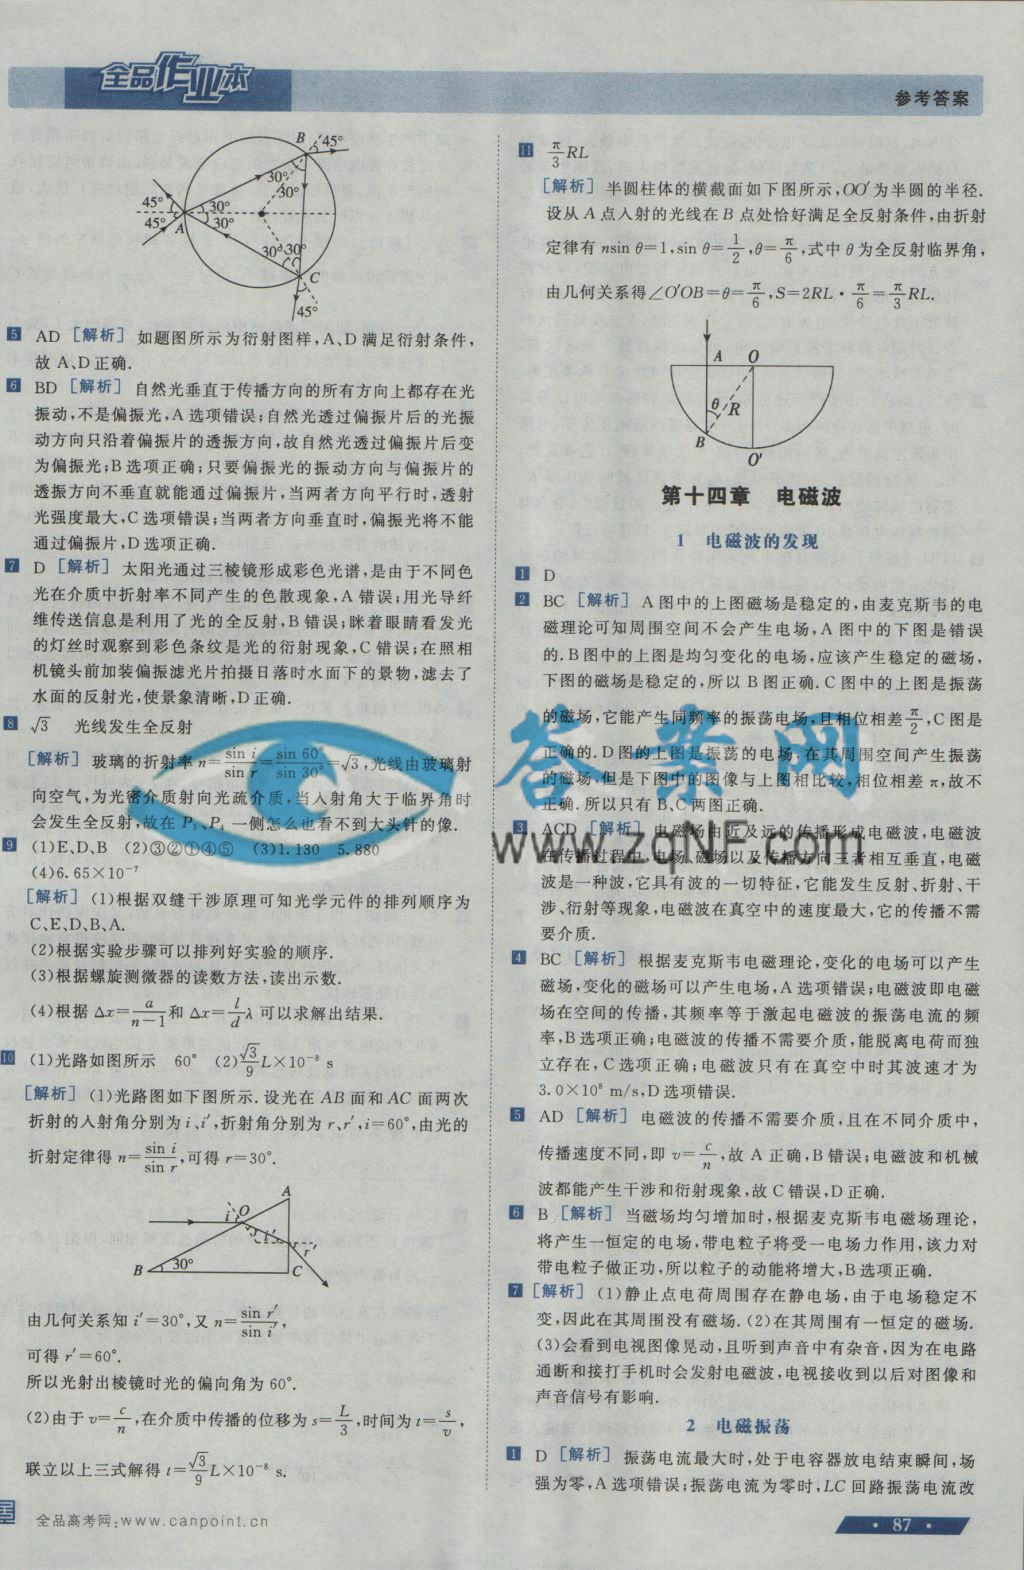 全品作业本
参考答案
B
45°
30°
30°
45°
45°
30°
30°
A
30°
30°
C
45°
5 AD [解析] 如题图所示为衍射图样,A、D满足衍射条件,
故A、D正确.
6 BD [解析] 自然光垂直于传播方向的所有方向上都存在光
振动,不是偏振光,A选项错误;自然光透过偏振片后的光振
动方向只沿着偏振片的透振方向,故自然光透过偏振片后变
为偏振光;B选项正确;只要偏振光的振动方向与偏振片的
透振方向不垂直就能通过偏振片,当两者方向平行时,透射
光强度最大,C选项错误;当两者方向垂直时,偏振光将不能
通过偏振片,D选项正确.
7 D [解析] 太阳光通过三棱镜形成彩色光谱,是由于不同色
光在介质中折射率不同产生的色散现象,A错误;用光导纤
维传送信息是利用了光的全反射,B错误;眯着眼睛看发光
的灯丝时观察到彩色条纹是光的衍射现象,C错误;在照相
机镜头前加装偏振滤光片拍摄日落时水面下的景物,滤去了
水面的反射光,使景象清晰,D正确.
8 √3 光线发生全反射
[解析] 玻璃的折射率n=sin i/sin r=sin 60°/sin 30°=√3,光线由玻璃射
向空气,为光密介质射向光疏介质,当入射角大于临界角时
会发生全反射,故在P₃、P₄一侧怎么也看不到大头针的像.
9 (1)E、D、B (2)③②①④⑤ (3)1.130 5.880
(4)6.65×10⁻⁷
[解析] (1)根据双缝干涉原理可知光学元件的排列顺序为
C、E、D、B、A.
(2)根据实验步骤可以排列好实验的顺序.
(3)根据螺旋测微器的读数方法,读出示数.
(4)根据Δx=a/(n−1)和Δx=(l/d)λ可以求解出结果.
10 (1)光路如图所示 60° (2)(√3/9)L×10⁻⁸ s
[解析] (1)光路图如下图所示.设光在AB面和AC面两次
折射的入射角分别为i、i′,折射角分别为r、r′,i=60°,由光的
折射定律得n=sin i/sin r,可得r=30°.
A
O
i
i′
r′
B
30°
C
由几何关系知i′=30°,又n=sin r′/sin i′,
可得r′=60°.
所以光射出棱镜时光的偏向角为60°.
(2)由于v=c/n,在介质中传播的位移为s=L/3,时间为t=s/v,
联立以上三式解得t=(√3/9)L×10⁻⁸ s.
全品高考网:www.canpoint.cn
11 (π/3)RL
[解析] 半圆柱体的横截面如下图所示,OO′为半圆的半径.
设从A点入射的光线在B点处恰好满足全反射条件,由折射
定律有nsin θ=1,sin θ=1/2,θ=π/6,式中θ为全反射临界角,
由几何关系得∠O′OB=θ=π/6,S=2RL·π/6=(π/3)RL.
A
O
θ
R
B
O′
第十四章 电磁波
1 电磁波的发现
1 D
2 BC [解析] A图中的上图磁场是稳定的,由麦克斯韦的电
磁理论可知周围空间不会产生电场,A图中的下图是错误
的.B图中的上图是均匀变化的电场,应该产生稳定的磁场,
下图的磁场是稳定的,所以B图正确.C图中的上图是振荡
的磁场,它能产生同频率的振荡电场,且相位相差π/2,C图是
正确的.D图的上图是振荡的电场,在其周围空间产生振荡
的磁场,但是下图中的图像与上图相比较,相位相差π,故不
正确.所以只有B、C两图正确.
3 ACD [解析] 电磁场由近及远的传播形成电磁波,电磁波
在传播过程中,电场、磁场以及传播方向三者相互垂直,电磁
波是一种波,它具有波的一切特征,它能发生反射、折射、干
涉、衍射等现象,电磁波在真空中的速度最大,它的传播不需
要介质.
4 BC [解析] 根据麦克斯韦电磁理论,变化的电场可以产生
磁场,变化的磁场可以产生电场,A选项错误;电磁波即电磁
场在空间的传播,其频率等于激起电磁波的振荡电流的频
率,B选项正确;电磁波的传播不需要介质,能脱离电荷而独
立存在,C选项正确;电磁波只有在真空中时其波速才为
3.0×10⁸ m/s,D选项错误.
5 AD [解析] 电磁波的传播不需要介质,且在不同介质中,
传播速度不同,即v=c/n,故A正确,B错误;电磁波和机械
波都能产生干涉和衍射现象,故C错误,D正确.
6 B [解析] 当磁场均匀增加时,根据麦克斯韦电磁场理论,
将产生一恒定的电场,带电粒子将受一电场力作用,该力对
带电粒子做正功,所以粒子的动能将增大,B选项正确.
7 [解析] (1)静止点电荷周围存在静电场,由于电场稳定不
变,因此在其周围没有磁场.(2)在其周围有一恒定的磁场.
(3)会看到电视图像晃动,且听到声音中有杂音,因为在电路
通断和接打手机时会发射电磁波,电视接收到以后对图像和
声音信号有影响.
2 电磁振荡
1 D [解析] 振荡电流最大时,处于电容器放电结束瞬间,场
强为零,A选项错误;振荡电流为零时,LC回路振荡电流改
· 87 ·
答案网
www.zqNF.com